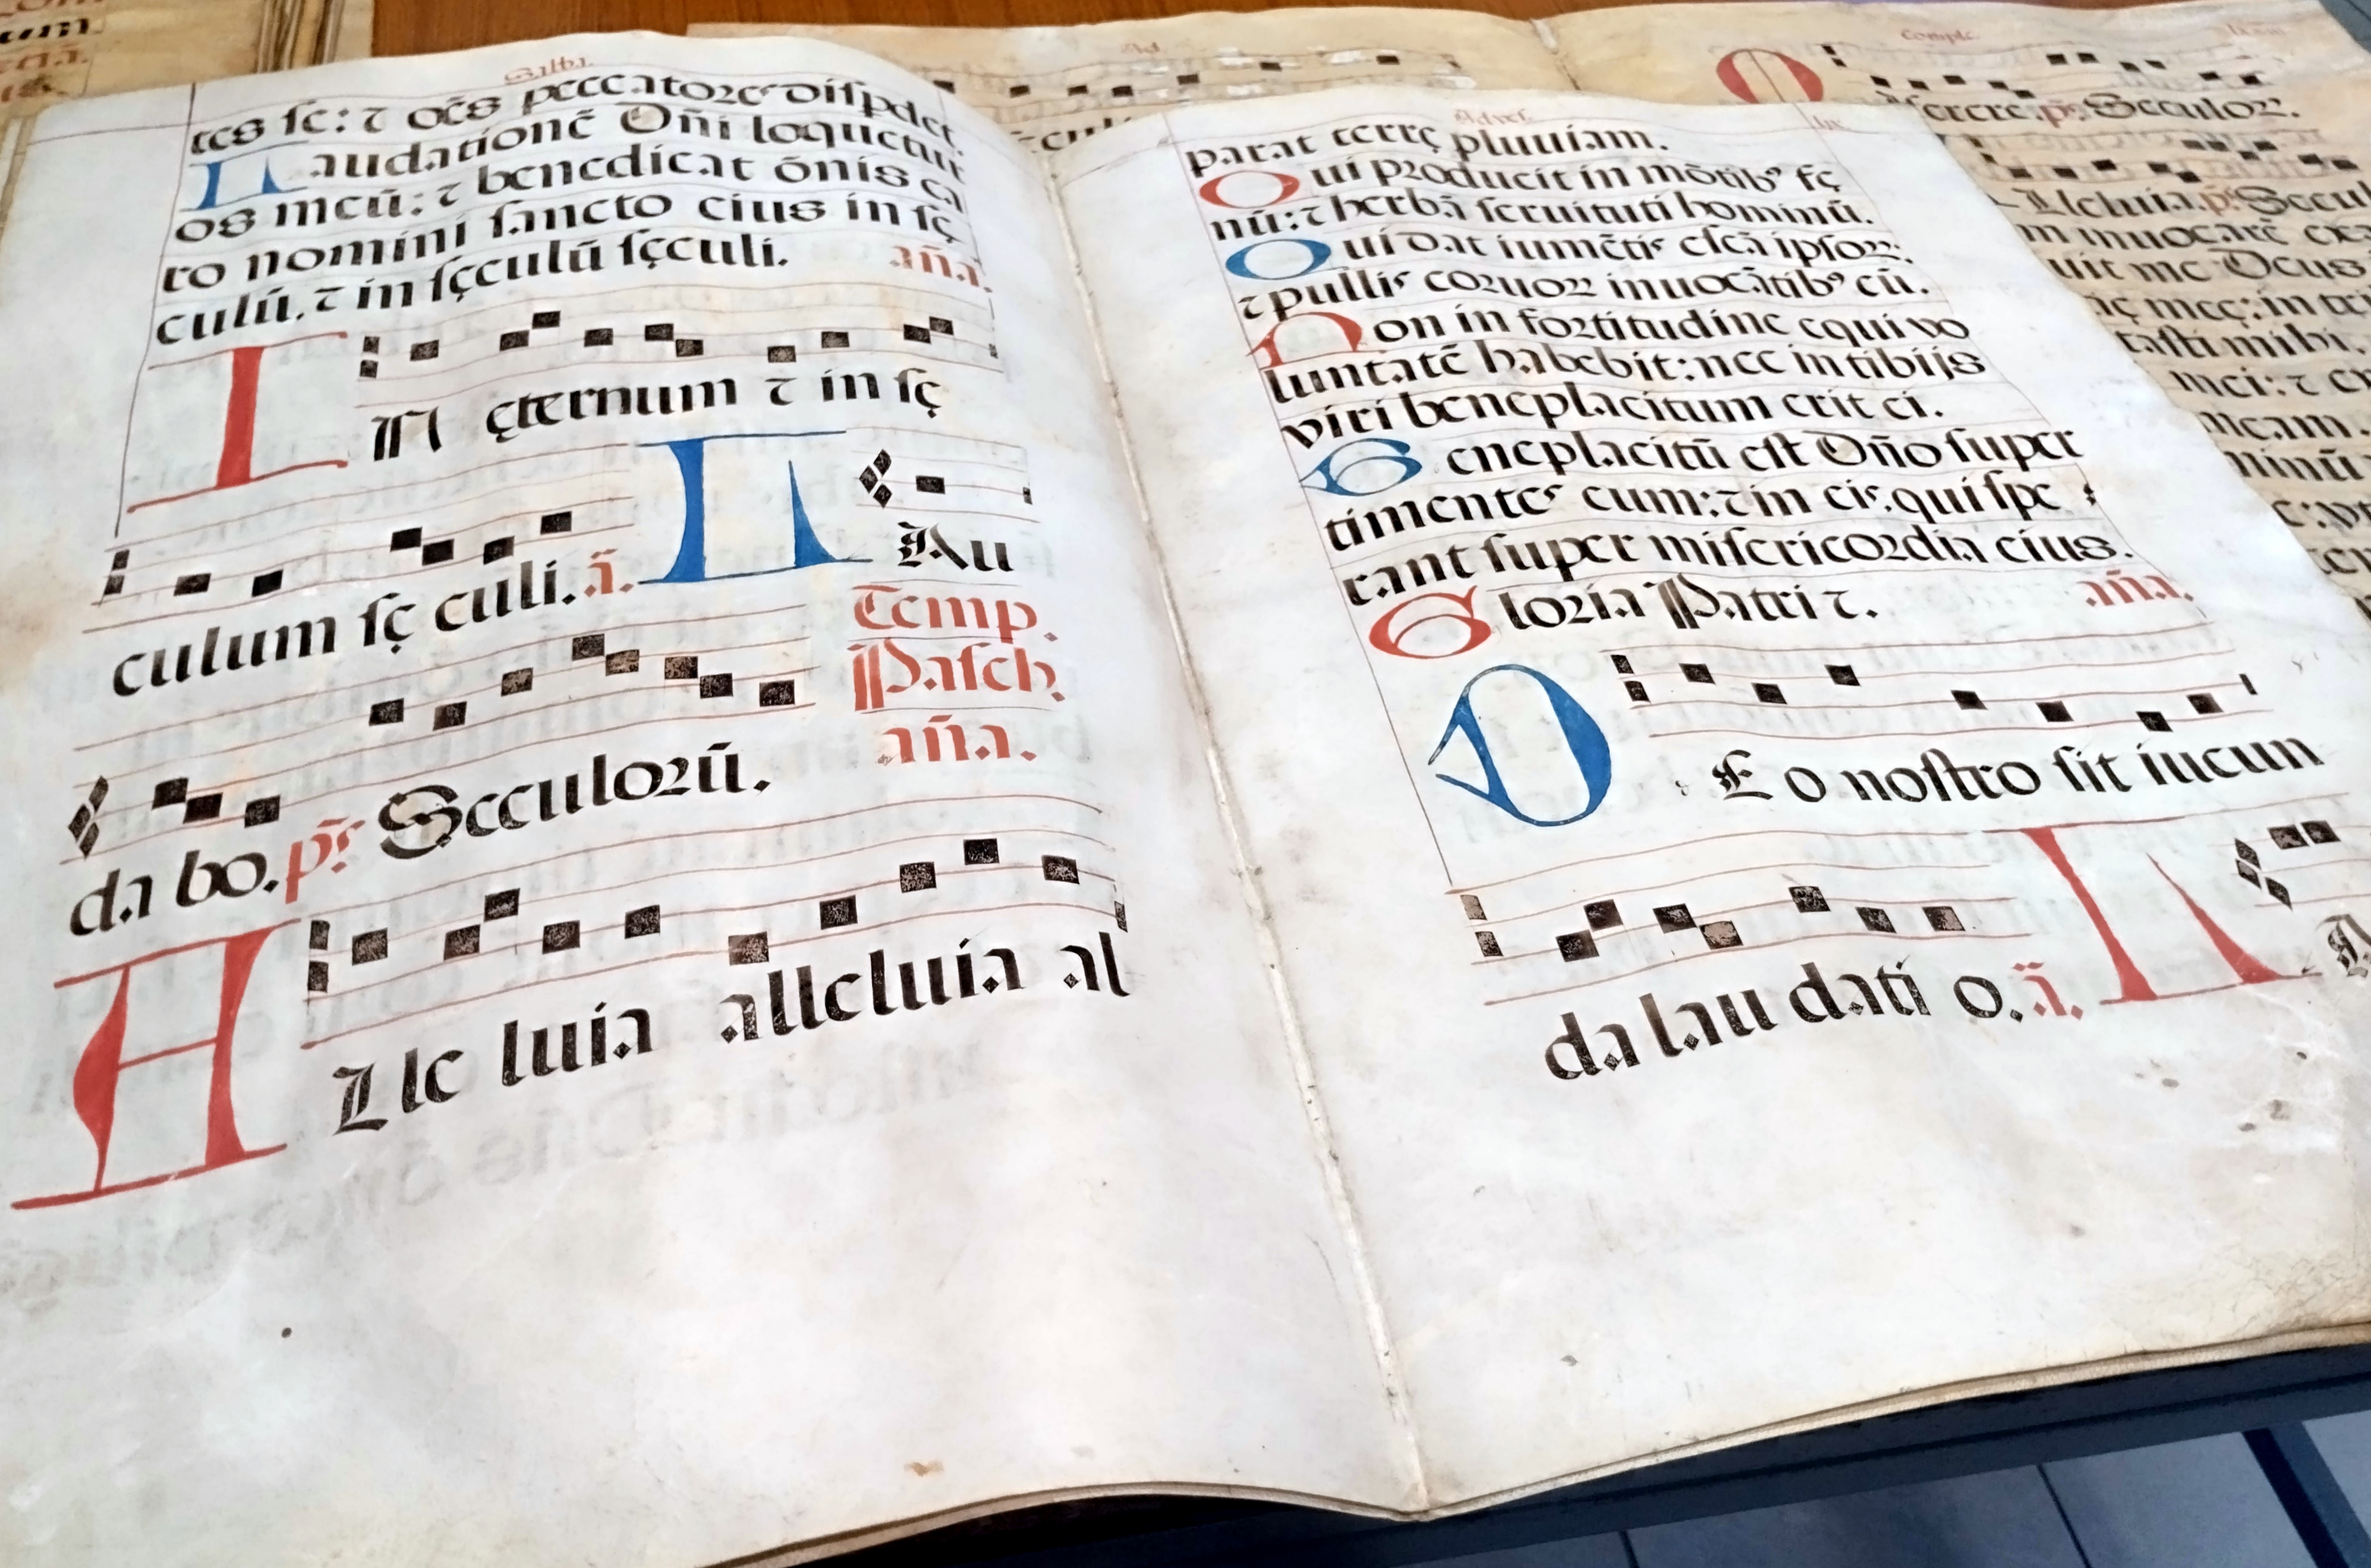 Sabb.
tes se: ⁊ oēs peccatores disp̄det.
Laudationē Dn̄i loquetur
os meū: ⁊ benedicat ōnis ca
ro nomini sancto eius in sę
culū, ⁊ in sęculū sęculi. an̄a.
IN ęternum ⁊ in sę
culum sę culi. ā. LAu
Temp.
Pasch.
an̄a.
da bo. ps̄ Seculorū.
ALle luia alleluia al
parat terrę pluuiam.
Qui producit in mōtibꝰ fę
nū: ⁊ herbā seruituti hominū.
Qui dat iumētis escā ipsoꝝ:
⁊ pullis coruoꝝ inuocātibꝰ eū.
Non in fortitudine equi vo
luntatē habebit: nec in tibijs
viri beneplacitum erit ei.
Beneplacitū est Dn̄o super
timentes eum: ⁊ in eis, qui spe
rant super misericordia eius.
Gloria Patri ⁊. an̄a.
DEo nostro sit iucun
da lau dati o. ā. LA
Ad.
Comple.
ps̄ Seculoꝝ.
Lleluia. ps̄ Secul
inuocarē
uit me Deus
męę: in tri
tasti mihi.
mei: ⁊
meam.